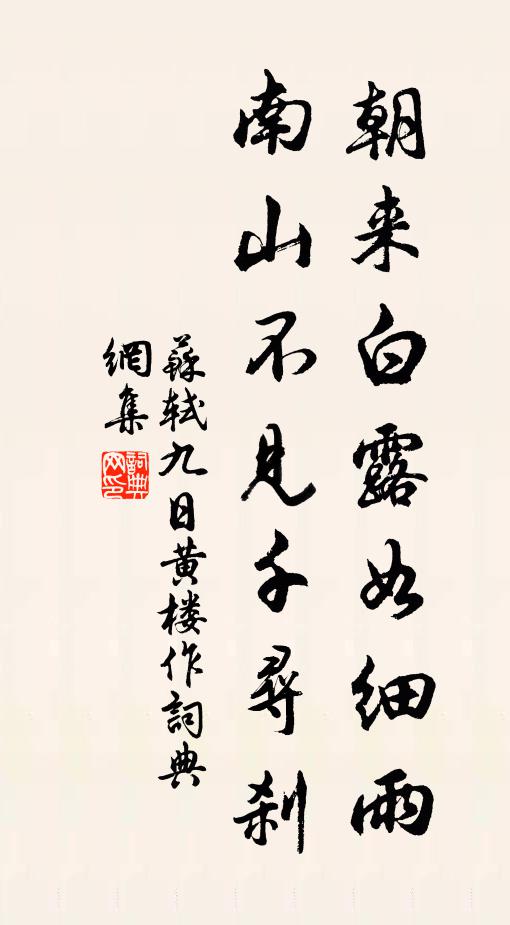 朝来白露如细雨
南山不见千尋刹
蘇軾九日黄楼作詞典
網集
詞典網印